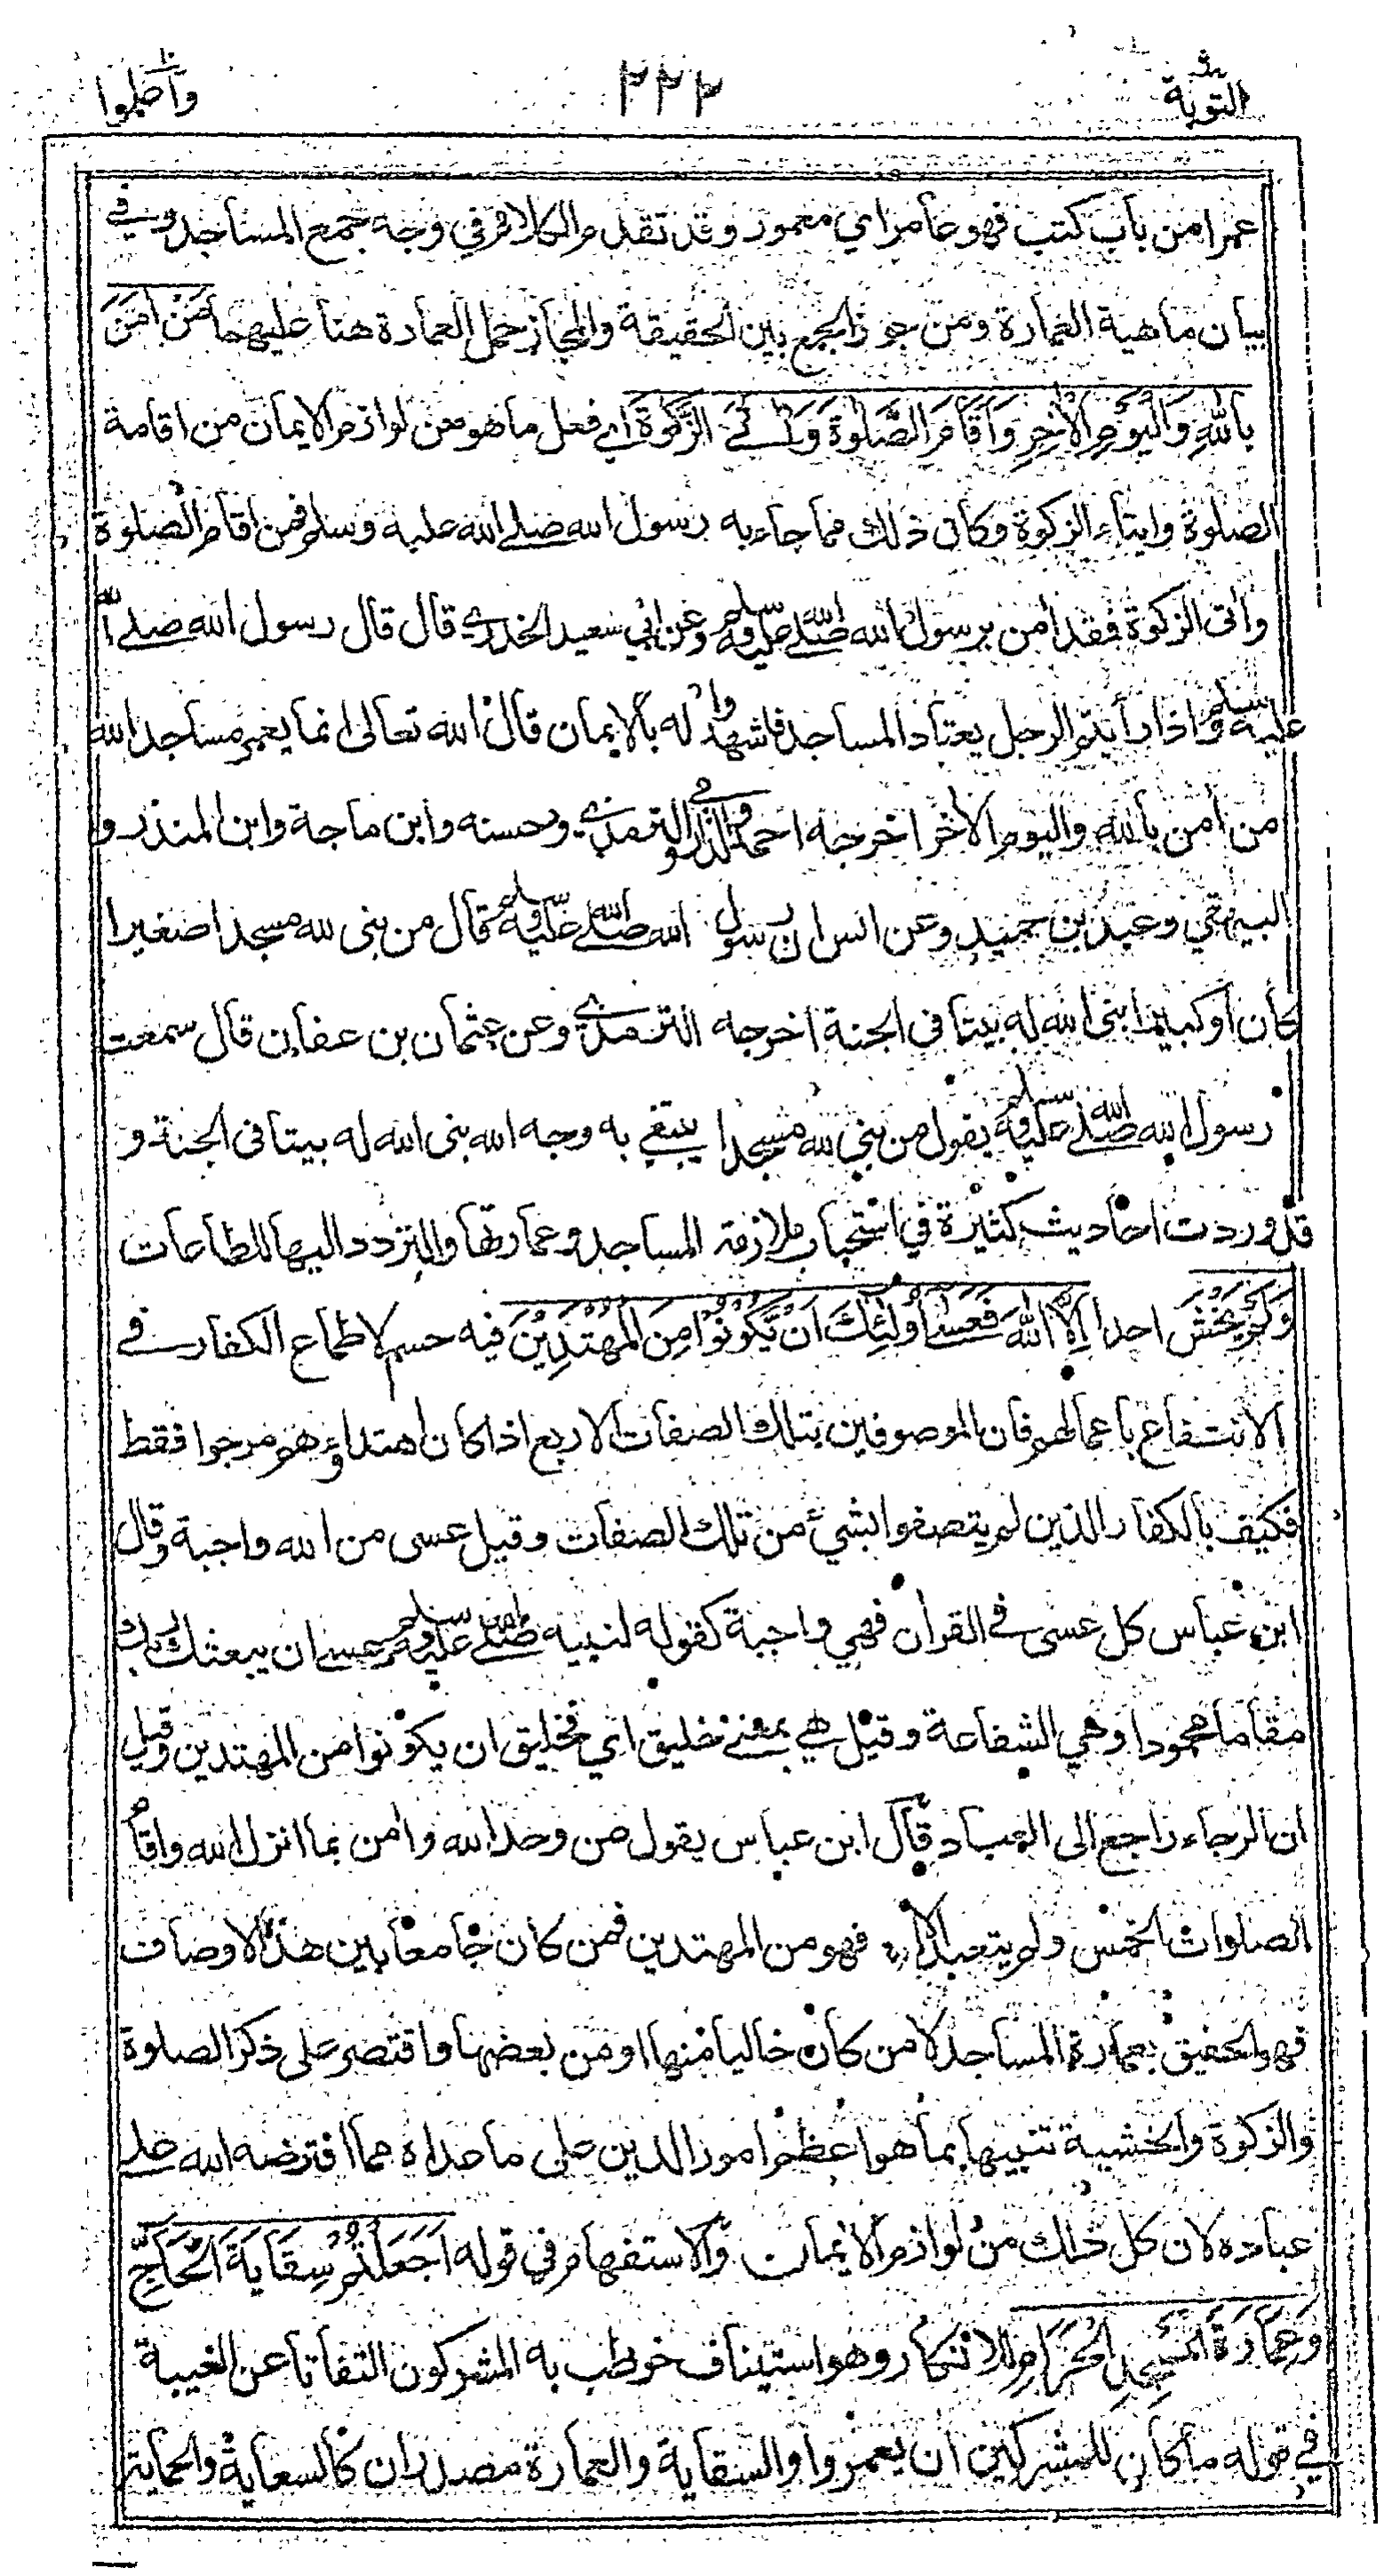 التوبة ٢٢٢ واعلموا
عمرا من باب كتب فهو عامر اي معمور وقد تقدم الكلام في وجه جمع المساجد وفي
بيان ماهية العمارة ومن جوز الجمع بين الحقيقة والمجاز حمل العمارة هنا عليهما مَنْ اٰمَنَ
بِاللّٰهِ وَالْيَوْمِ الْاٰخِرِ وَاَقَامَ الصَّلٰوةَ وَاٰتَى الزَّكٰوةَ اي فعل ما هو من لوازم الايمان من اقامة
الصلوة وايتاء الزكوة وكان ذلك مما جاء به رسول الله صلى الله عليه وسلم فمن اقام الصلوة
واٰتى الزكوة فقد اٰمن برسول الله صلى الله عليه وسلم وعن ابي سعيد الخدري قال قال رسول الله صلى الله
عليه وسلم اذا رأيتم الرجل يعتاد المساجد فاشهدوا له بالايمان قال الله تعالى انما يعمر مساجد الله
من اٰمن بالله واليوم الاٰخر اخرجه احمد والدارمي والترمذي وحسنه وابن ماجة وابن المنذر و
البيهقي وعبد بن حميد وعن انس ان رسول الله صلى الله عليه وسلم قال من بنى لله مسجدا صغيرا
كان او كبيرا بنى الله له بيتا في الجنة اخرجه الترمذي وعن عثمان بن عفان قال سمعت
رسول الله صلى الله عليه وسلم يقول من بنى لله مسجدا يبتغي به وجه الله بنى الله له بيتا في الجنة و
قد وردت احاديث كثيرة في استحباب ملازمة المساجد وعمارتها والتردد اليها للطاعات
وَلَمْ يَخْشَ احدا اِلَّا اللّٰهَ فَعَسٰى اُولٰئِكَ اَنْ يَّكُوْنُوْا مِنَ الْمُهْتَدِيْنَ فيه حسم لاطماع الكفار في
الانتفاع باعمالهم فان الموصوفين بتلك الصفات الاربع اذا كان اهتداؤهم مرجوا فقط
فكيف بالكفار الذين لم يتصفوا بشئ من تلك الصفات وقيل عسى من الله واجبة وقال
ابن عباس كل عسى في القراٰن فهي واجبة كقوله لنبيه صلى الله عليه وسلم عسى ان يبعثك ربك
مقاما محمودا وهي الشفاعة وقيل هي بمعنى خليق اي فخليق ان يكونوا من المهتدين وقيل
ان الرجاء راجع الى العباد قال ابن عباس يقول من وحد الله واٰمن بما انزل الله واقام
الصلوات الخمس ولم يعبد الا الله فهو من المهتدين فمن كان جامعا بين هذه الاوصاف
فهو الحقيق بعمارة المساجد لا من كان خاليا منها او من بعضها واقتصر على ذكر الصلوة
والزكوة والخشية تنبيها بما هو اعظم امور الدين على ما عداه مما افترضه الله على
عباده لان كل ذلك من لوازم الايمان والاستفهام في قوله اَجَعَلْتُمْ سِقَايَةَ الْحَاجِّ
وَعِمَارَةَ الْمَسْجِدِ الْحَرَامِ للانكار وهو استيناف خوطب به المشركون التفاتا عن الغيبة
في قوله ما كان للمشركين ان يعمروا والسقاية والعمارة مصدران كالسعاية والحماية